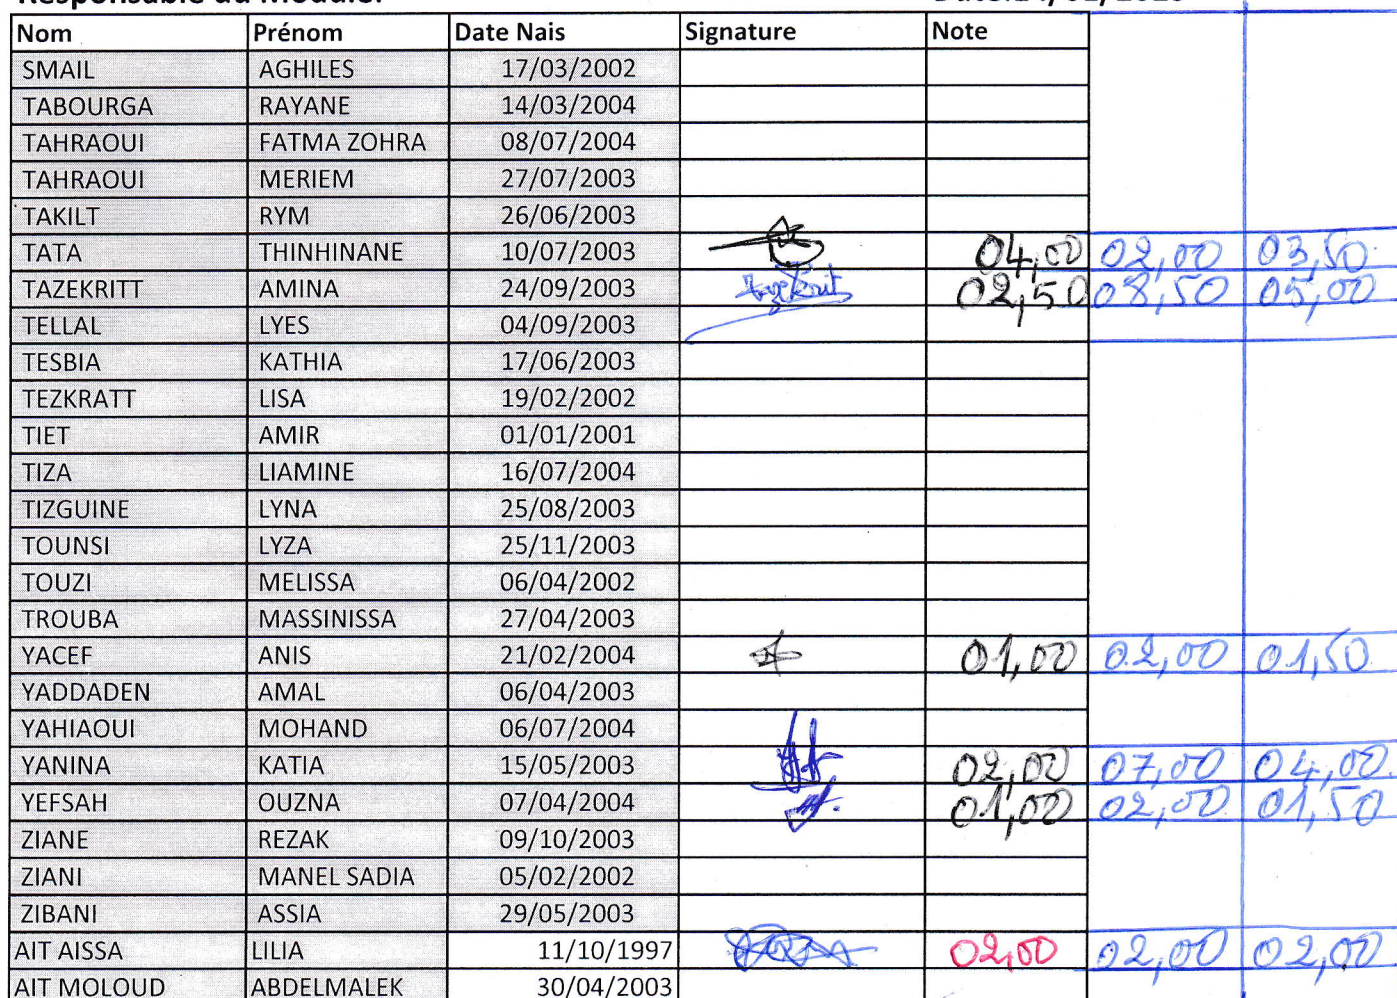 Nom Prénom Date Nais Signature Note
SMAIL AGHILES 17/03/2002
TABOURGA RAYANE 14/03/2004
TAHRAOUI FATMA ZOHRA 08/07/2004
TAHRAOUI MERIEM 27/07/2003
TAKILT RYM 26/06/2003
TATA THINHINANE 10/07/2003 04,00 02,00 03,50
TAZEKRITT AMINA 24/09/2003 02,50 08,50 05,00
TELLAL LYES 04/09/2003
TESBIA KATHIA 17/06/2003
TEZKRATT LISA 19/02/2002
TIET AMIR 01/01/2001
TIZA LIAMINE 16/07/2004
TIZGUINE LYNA 25/08/2003
TOUNSI LYZA 25/11/2003
TOUZI MELISSA 06/04/2002
TROUBA MASSINISSA 27/04/2003
YACEF ANIS 21/02/2004 01,00 02,00 01,50
YADDADEN AMAL 06/04/2003
YAHIAOUI MOHAND 06/07/2004
YANINA KATIA 15/05/2003 02,00 07,00 04,00
YEFSAH OUZNA 07/04/2004 01,00 02,00 01,50
ZIANE REZAK 09/10/2003
ZIANI MANEL SADIA 05/02/2002
ZIBANI ASSIA 29/05/2003
AIT AISSA LILIA 11/10/1997 02,00 02,00 02,00
AIT MOLOUD ABDELMALEK 30/04/2003